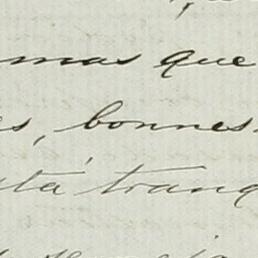 mas que
s, bonnes
stá tranq